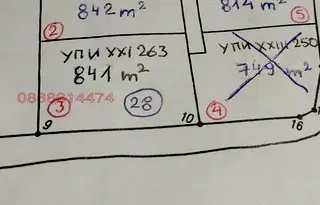 842 m²
814 m²
2
5
УПИ XXI 263
841 m²
УПИ XXIII 250
749 m²
0888914474
3
28
4
9
10
16